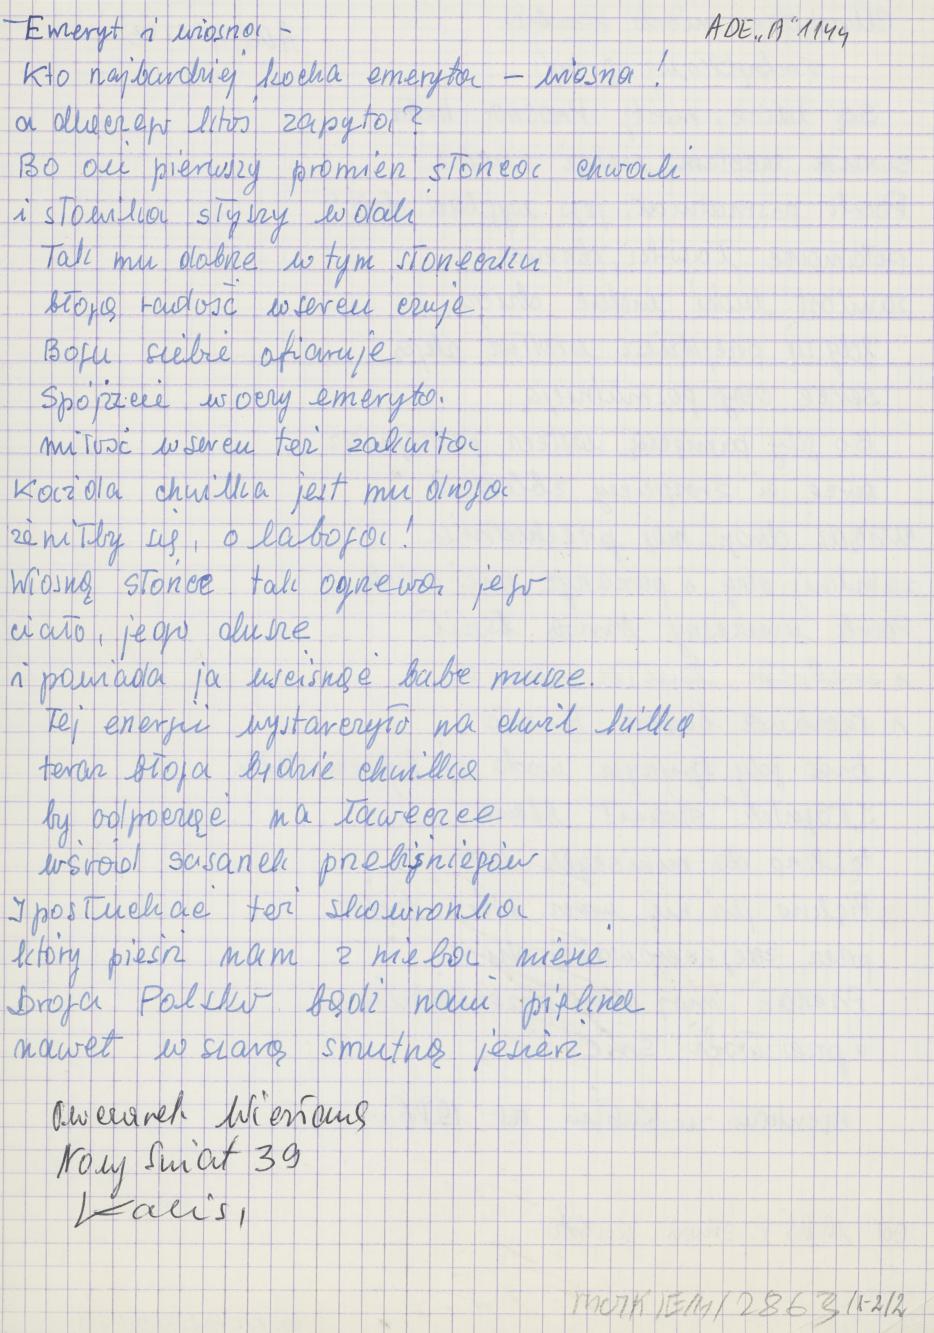 – Emeryt i wiosna –
ADE „B" 1144
Kto najbardziej kocha emeryta – wiosna!
a dlaczego ktoś zapyta?
Bo on pierwszy promień słońca chwali
i słowika słyszy w dali
Tak mu dobrze w tym słoneczku
błogą radość w sercu czuje
Bogu siebie ofiaruje
Spójrzcie w oczy emeryta.
miłość w sercu też zakwita
Każda chwilka jest mu droga
żeniłby się, o laboga!
Wiosną słońce tak ogrzewa jego
ciało, jego dusze
i powiada ja uścisnąć babe musze.
Tej energii wystarczyło na chwil kilka
teraz błoga będzie chwilka
by odpocząć na ławeczce
wśród sasanek przebiśniegów
I posłuchać też skowronka
który pieśń nam z nieba niesie
Droga Polsko bądź nam piękna
nawet w szarą smutną jesień
Owczarek Wiesława
Nowy Świat 39
Kalisz,
MOTK/EM/2863/1-2/2